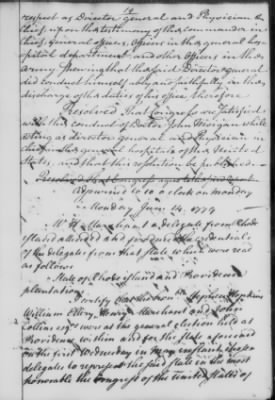 14
respect as Director general and Physician in
chief, upon the testimony of the commander in
chief, general officers, officers in the general hos-
pital department, and other officers in the
army shewing that the said Director general
did conduct himself ably and faithfully in the
discharge of the duties of his office, therefore
Resolved That Congress are satisfied
with the conduct of Doctor John Morgan while
acting as director general and Physician in
chief in the general hospitals of the United
States, and that this resolution be published.
Adjourned to 10 o'clock on monday
Monday June 14, 1779
Mr H. Marchant a delegate from Rhode
island attended and produced the credentials
of the delegates from that state which were read
as follows
State of Rhode island and Providence
plantations
I certify that the honble Stephen Hopkins
William Ellery, Henry Marchant and John
Collins esqrs were at the general election held at
Providence within and for the state aforesaid
on the first Wednesday in May chosen
delegates to represent the said state in the most
honorable the Congress of the United States of